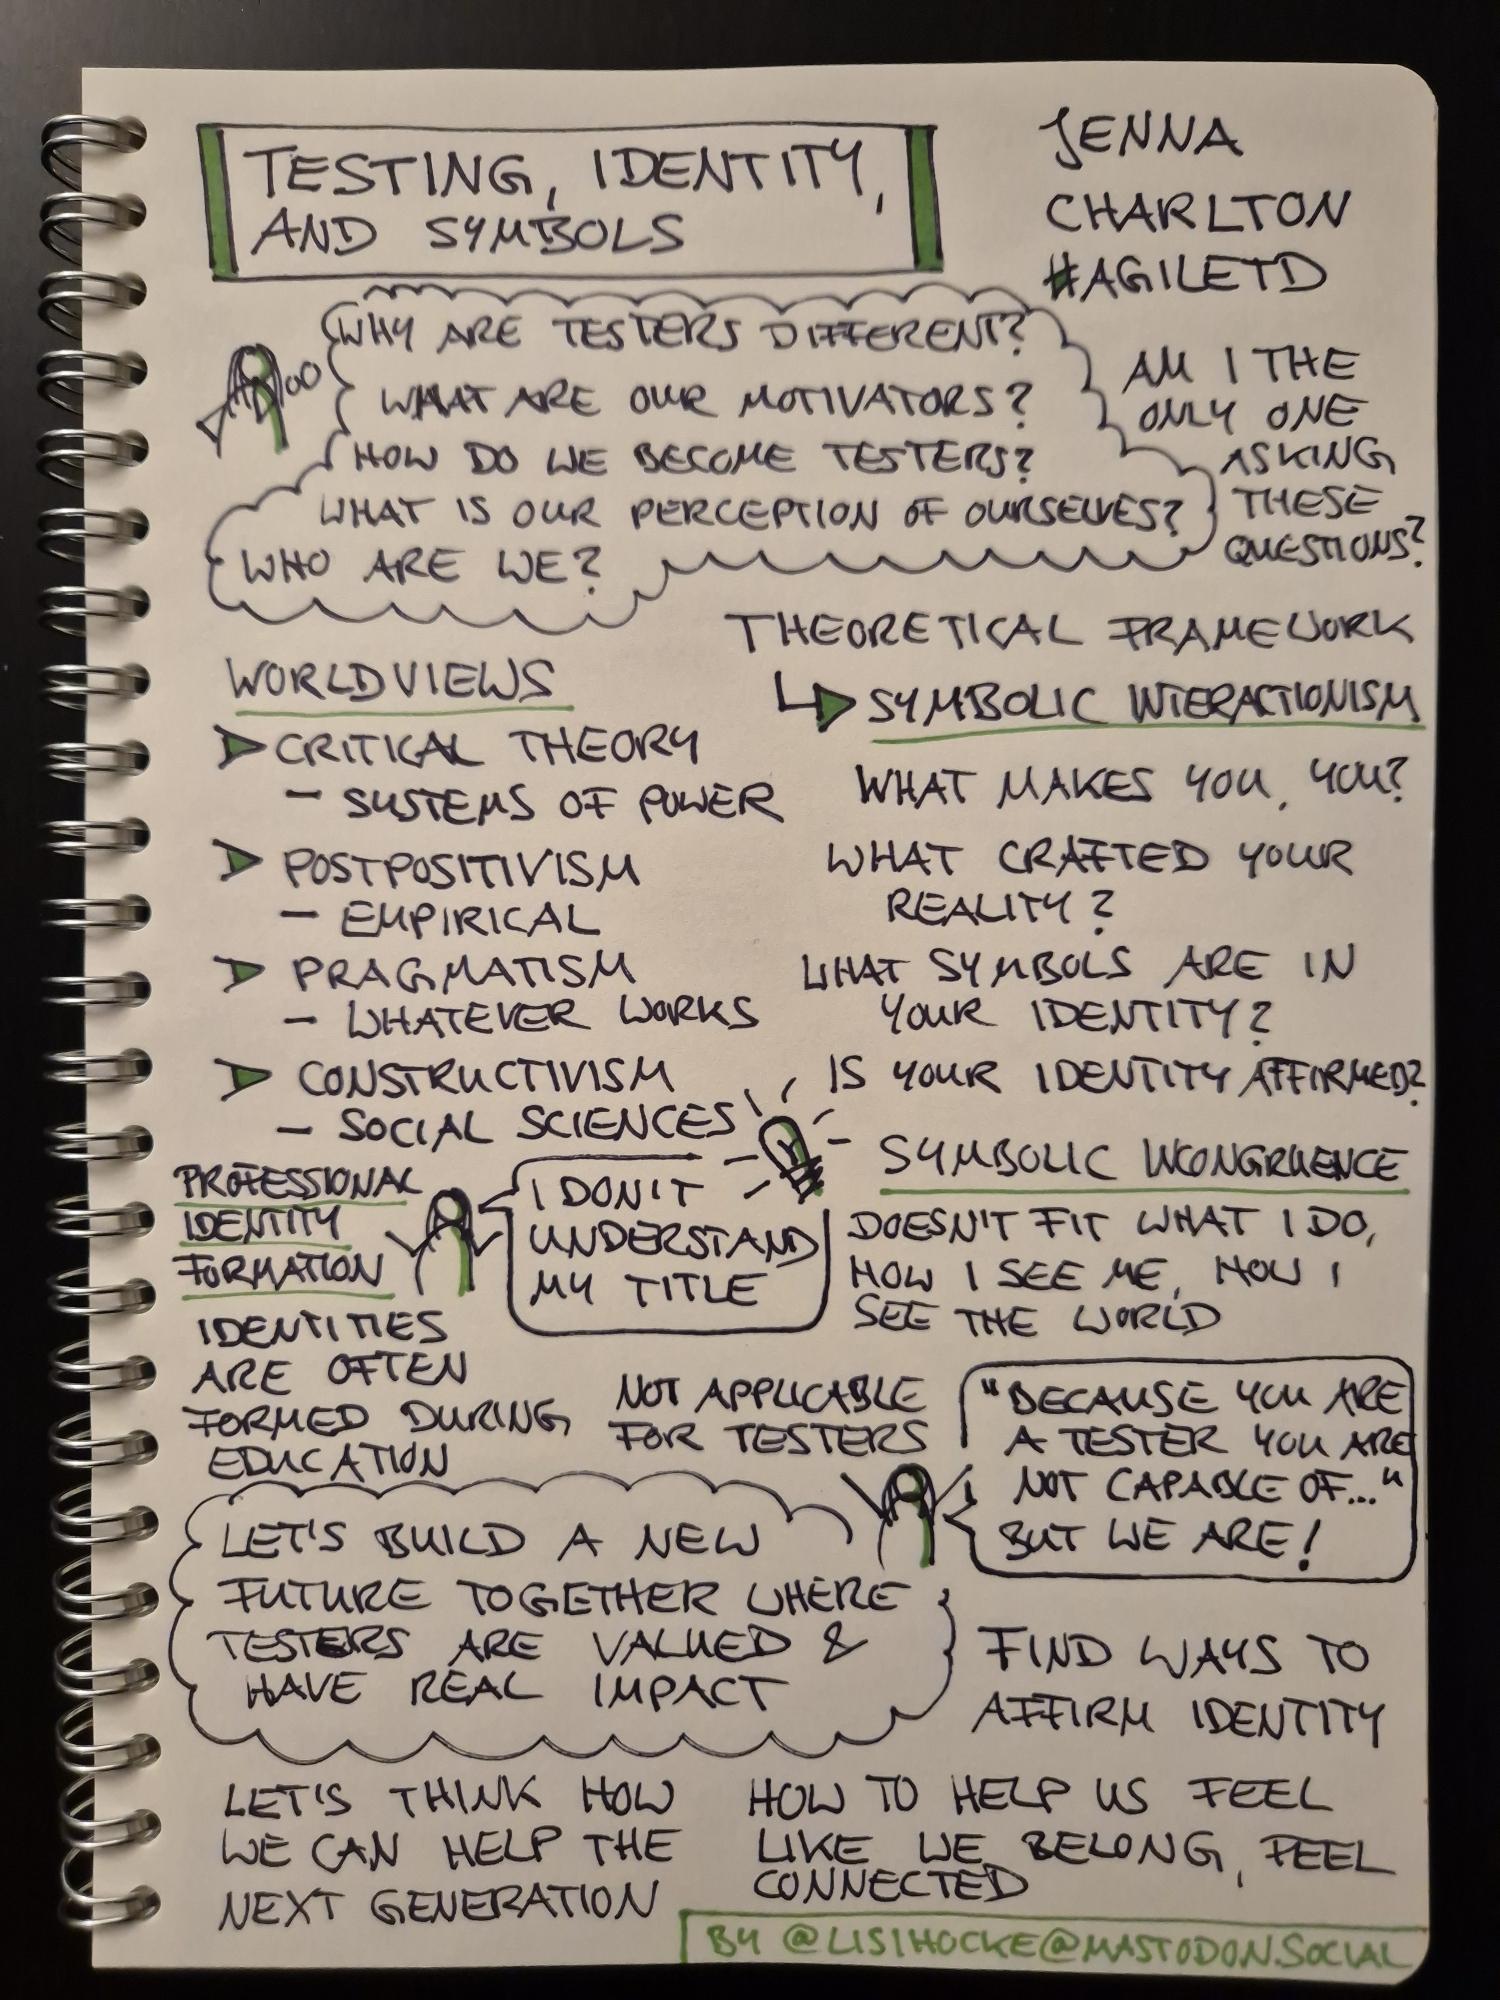 TESTING, IDENTITY,
AND SYMBOLS
JENNA
CHARLTON
#AGILETD
WHY ARE TESTERS DIFFERENT?
WHAT ARE OUR MOTIVATORS?
HOW DO WE BECOME TESTERS?
WHAT IS OUR PERCEPTION OF OURSELVES?
WHO ARE WE?
AM I THE
ONLY ONE
ASKING
THESE
QUESTIONS?
THEORETICAL FRAMEWORK
SYMBOLIC INTERACTIONISM
WHAT MAKES YOU, YOU?
WHAT CRAFTED YOUR
REALITY?
WHAT SYMBOLS ARE IN
YOUR IDENTITY?
IS YOUR IDENTITY AFFIRMED?
WORLDVIEWS
CRITICAL THEORY
- SYSTEMS OF POWER
POSTPOSITIVISM
- EMPIRICAL
PRAGMATISM
- WHATEVER WORKS
CONSTRUCTIVISM
- SOCIAL SCIENCES
SYMBOLIC INCONGRUENCE
DOESN'T FIT WHAT I DO,
HOW I SEE ME, HOW I
SEE THE WORLD
I DON'T
UNDERSTAND
MY TITLE
PROFESSIONAL
IDENTITY
FORMATION
IDENTITIES
ARE OFTEN
FORMED DURING
EDUCATION
NOT APPLICABLE
FOR TESTERS
"BECAUSE YOU ARE
A TESTER YOU ARE
NOT CAPABLE OF..."
BUT WE ARE!
LET'S BUILD A NEW
FUTURE TOGETHER WHERE
TESTERS ARE VALUED &
HAVE REAL IMPACT
FIND WAYS TO
AFFIRM IDENTITY
LET'S THINK HOW
WE CAN HELP THE
NEXT GENERATION
HOW TO HELP US FEEL
LIKE WE BELONG, FEEL
CONNECTED
BY @LISIHOCKE@MASTODON.SOCIAL